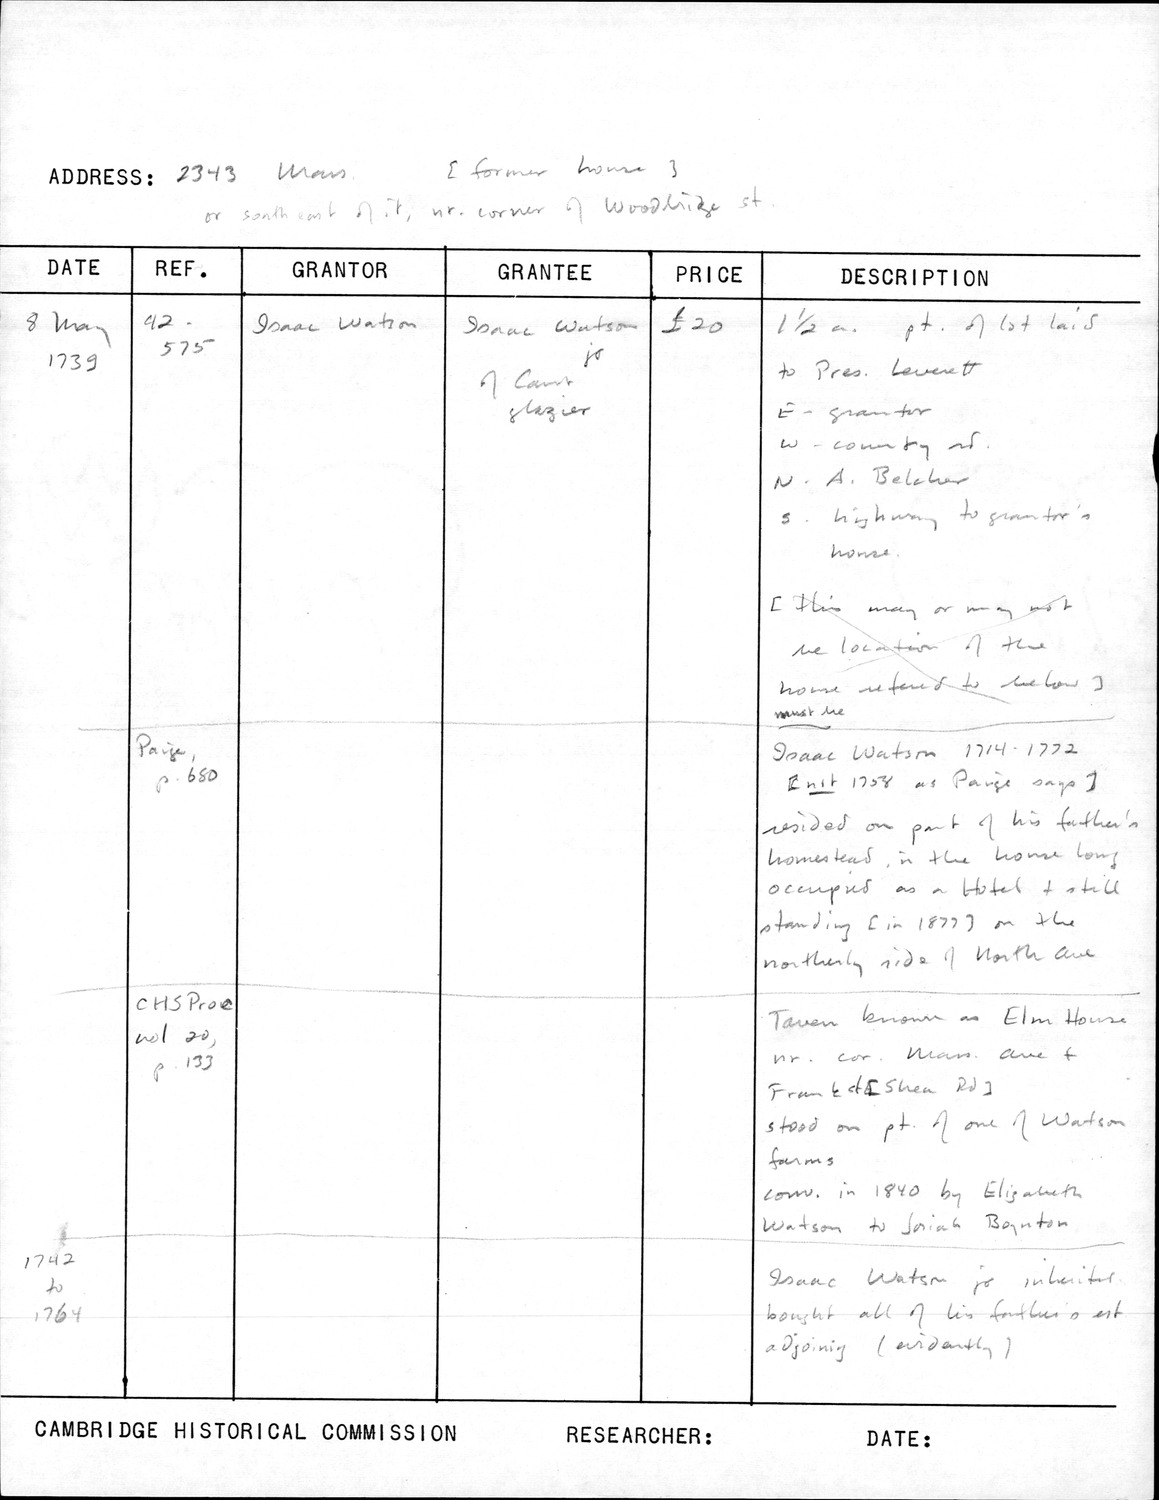 ADDRESS: 2343 Mass. [ former house ]
or southeast of it, nr. corner of Woodbridge st.
DATE REF. GRANTOR GRANTEE PRICE DESCRIPTION
8 May 42- Isaac Watson Isaac Watson £20 1 1/2 a. pt. of lot laid
1739 575 jr to Pres. Leverett
of Camb E - grantor
glazier W - county rd.
N. A. Belcher
S. highway to grantor's
house.
[ This may or may not
be location of the
house refered to below ]
must be
Paige, Isaac Watson 1714-1772
p. 680 [ not 1758 as Paige says ]
resided on part of his father's
homestead, in the house long
occupied as a Hotel + still
standing [ in 1877 ] on the
northerly side of North Ave
CHS Proc Tavern known as Elm House
vol 20, nr. cor. Mass. Ave +
p. 133 Frank st [ Shea Rd ]
stood on pt. of one of Watson
farms
conv. in 1840 by Elizabeth
Watson to Josiah Boynton
1742 Isaac Watson jr inherited
to bought all of his father's est
1764 adjoinig (evidently)
CAMBRIDGE HISTORICAL COMMISSION RESEARCHER: DATE: